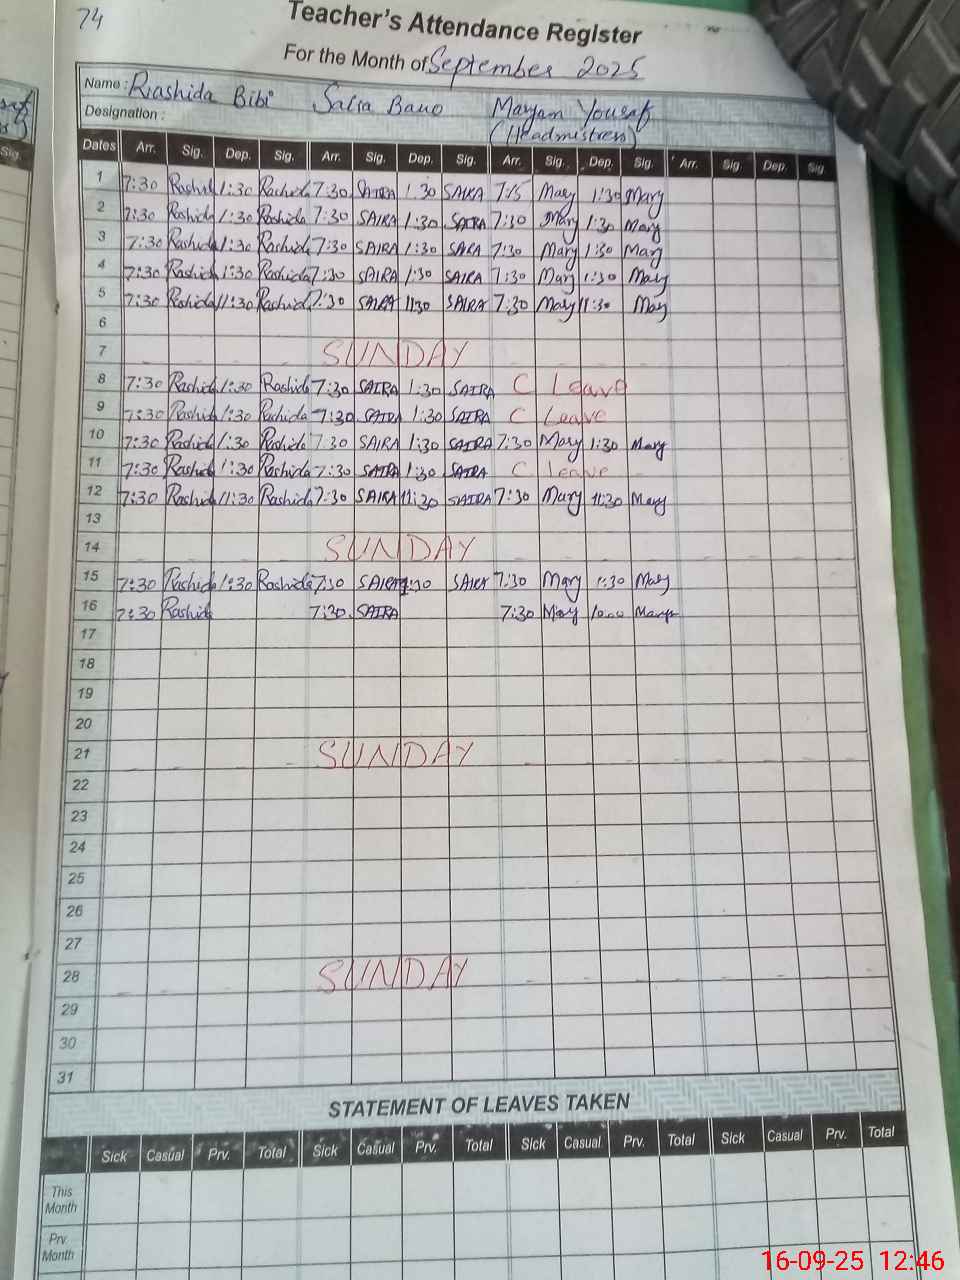 74
Teacher's Attendance Register
For the Month of September 2025
Name : Rashida Bibi Saira Bano Maryam Yousaf
Designation : (Headmistress)
Dates Arr. Sig. Dep. Sig. Arr. Sig. Dep. Sig. Arr. Sig. Dep. Sig. Arr. Sig. Dep. Sig.
1 7:30 Rashida 1:30 Rashida 7:30 SAIRA 1:30 SAIRA 7:15 Mary 1:30 Mary
2 7:30 Rashida 1:30 Rashida 7:30 SAIRA 1:30 SAIRA 7:30 Mary 1:30 Mary
3 7:30 Rashida 1:30 Rashida 7:30 SAIRA 1:30 SAIRA 7:30 Mary 1:30 Mary
4 7:30 Rashida 1:30 Rashida 7:30 SAIRA 1:30 SAIRA 7:30 Mary 1:30 Mary
5 7:30 Rashida 11:30 Rashida 7:30 SAIRA 11:30 SAIRA 7:30 Mary 11:30 Mary
6
7 SUNDAY
8 7:30 Rashida 1:30 Rashida 7:30 SAIRA 1:30 SAIRA C Leave
9 7:30 Rashida 1:30 Rashida 7:30 SAIRA 1:30 SAIRA C Leave
10 7:30 Rashida 1:30 Rashida 7:30 SAIRA 1:30 SAIRA 7:30 Mary 1:30 Mary
11 7:30 Rashida 1:30 Rashida 7:30 SAIRA 1:30 SAIRA C Leave
12 7:30 Rashida 11:30 Rashida 7:30 SAIRA 11:30 SAIRA 7:30 Mary 11:30 Mary
13
14 SUNDAY
15 7:30 Rashida 1:30 Rashida 7:30 SAIRA 1:30 SAIRA 7:30 Mary 1:30 Mary
16 7:30 Rashida 7:30 SAIRA 7:30 Mary 10:00 Mary
17
18
19
20
21 SUNDAY
22
23
24
25
26
27
28 SUNDAY
29
30
31
STATEMENT OF LEAVES TAKEN
Sick Casual Prv. Total Sick Casual Prv. Total Sick Casual Prv. Total Sick Casual Prv. Total
This Month
Prv. Month
16-09-25 12:46